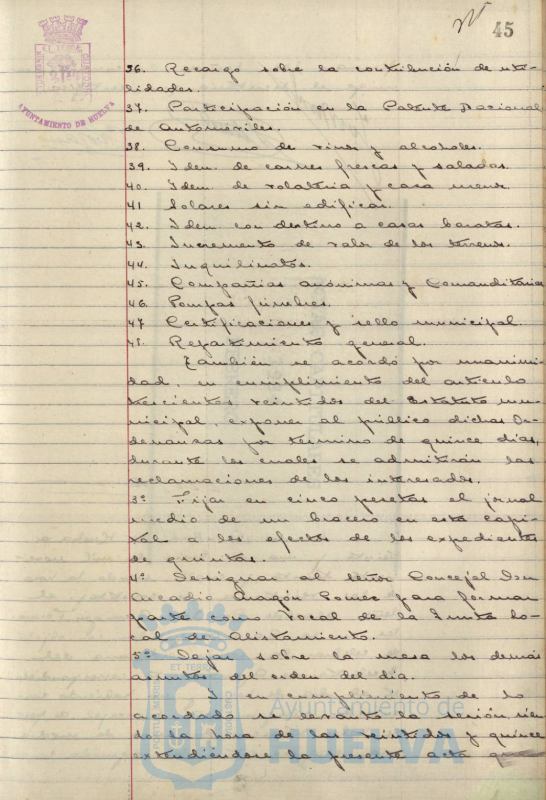 45
AYUNTAMIENTO DE HUELVA
36. Recargo sobre la contribución de uti-
lidades.
37. Participación en la Patente Nacional
de Automóviles.
38. Consumo de vinos y alcoholes.
39. Idem. de carnes frescas y saladas.
40. Idem. de volatería y caza menor
41 Solares sin edificar.
42. Idem con destino a casas baratas.
43. Incremento de valor de los terrenos.
44. Inquilinatos.
45. Compañías anónimas y Comanditarias
46. Pompas fúnebres.
47 Certificaciones y sello municipal.
48. Repartimiento general.
También se acordó por unanimi-
dad, en cumplimiento del artículo
trescientos veintidos del Estatuto mu-
nicipal, exponer al público dichas Or-
denanzas por término de quince días,
durante los cuales se admitirán las
reclamaciones de los interesados.
3º Fijar en cinco pesetas el jornal
medio de un bracero en esta capi-
tal a los efectos de los expedientes
de quintas.
4º Designar al Señor Concejal Don
Arcadio Aragón Gómez para formar
parte como Vocal de la Junta lo-
cal de Alistamiento.
5º Dejar sobre la mesa los demás
asuntos del orden del día.
Y en cumplimiento de lo
acordado se levantó la sesión sien-
do la hora de las veintidos y quince
extendiendose la presente acta que
Ayuntamiento de
HUELVA